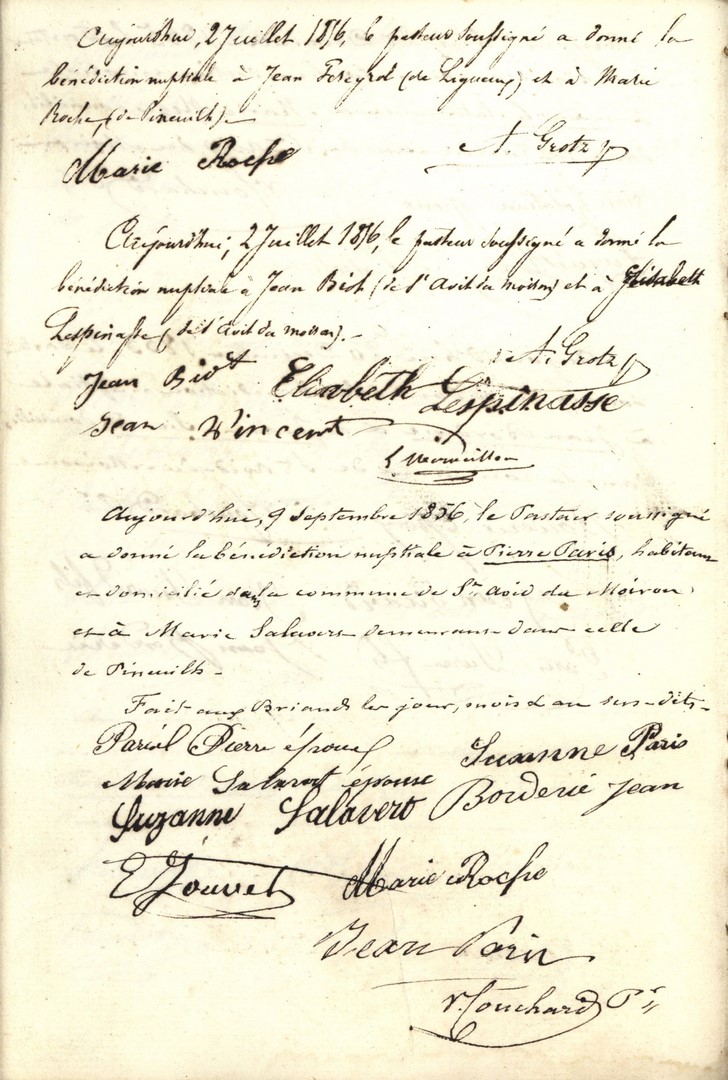 Aujourd'hui, 2 Juillet 1856, le pasteur soussigné a donné la
bénédiction nuptiale à Jean Feseyrol (de Ligueux) et à Marie
Roche, (de Pineuilh). —
A. Grotz
Marie Roche
Aujourd'hui, 2 Juillet 1856, le pasteur soussigné a donné la
bénédiction nuptiale à Jean Biot (de St Avit du moiron) et à Elisabeth
Lespinasse (de St Avit du moiron). —
A. Grotz
Jean Biot Elisabeth Lespinasse
Jean Vincent
Aujourd'hui, 9 Septembre 1856, le Pasteur soussigné
a donné la bénédiction nuptiale à Pierre Paris, habitant
et domicilié dans la commune de St. avid du Moiron,
et à Marie Salavert demeurant dans celle
de Pineuilh —
Fait aux Briands les jour, mois & an sus-dits —
Pierre époux Suzanne Paris
Marie Salavert épouse
Suzanne Salavert Borderie Jean
E Jouvet Marie Roche
Jean Paris
V. Couchard Pr